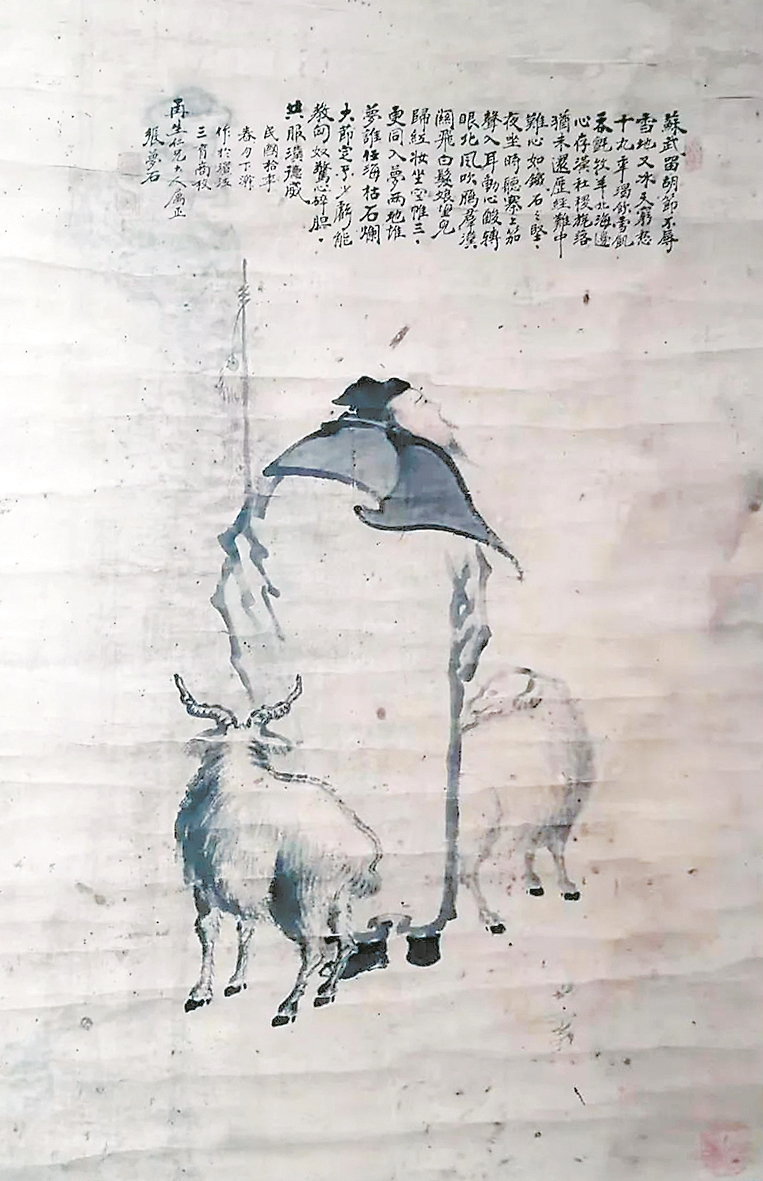 蘇武留胡節不辱
雪地又冰天窮愁
十九年渴飲雪飢
吞氈牧羊北海邊
心存漢社稷旄落
猶未還歷經難中
難心如鐵石之堅
夜坐時聽塞上笳
聲入耳動心酸轉
眼北風吹鴈群漢
關飛白髮娘望兒
歸紅妝坐空帷三
更同入夢兩地
夢誰任海枯石爛
大節定少虧能
教匈奴驚心碎胆
共服漢德威
民國拾年
春月下浣
作於
三育商校
再生仁兄大人屬正
張夢石